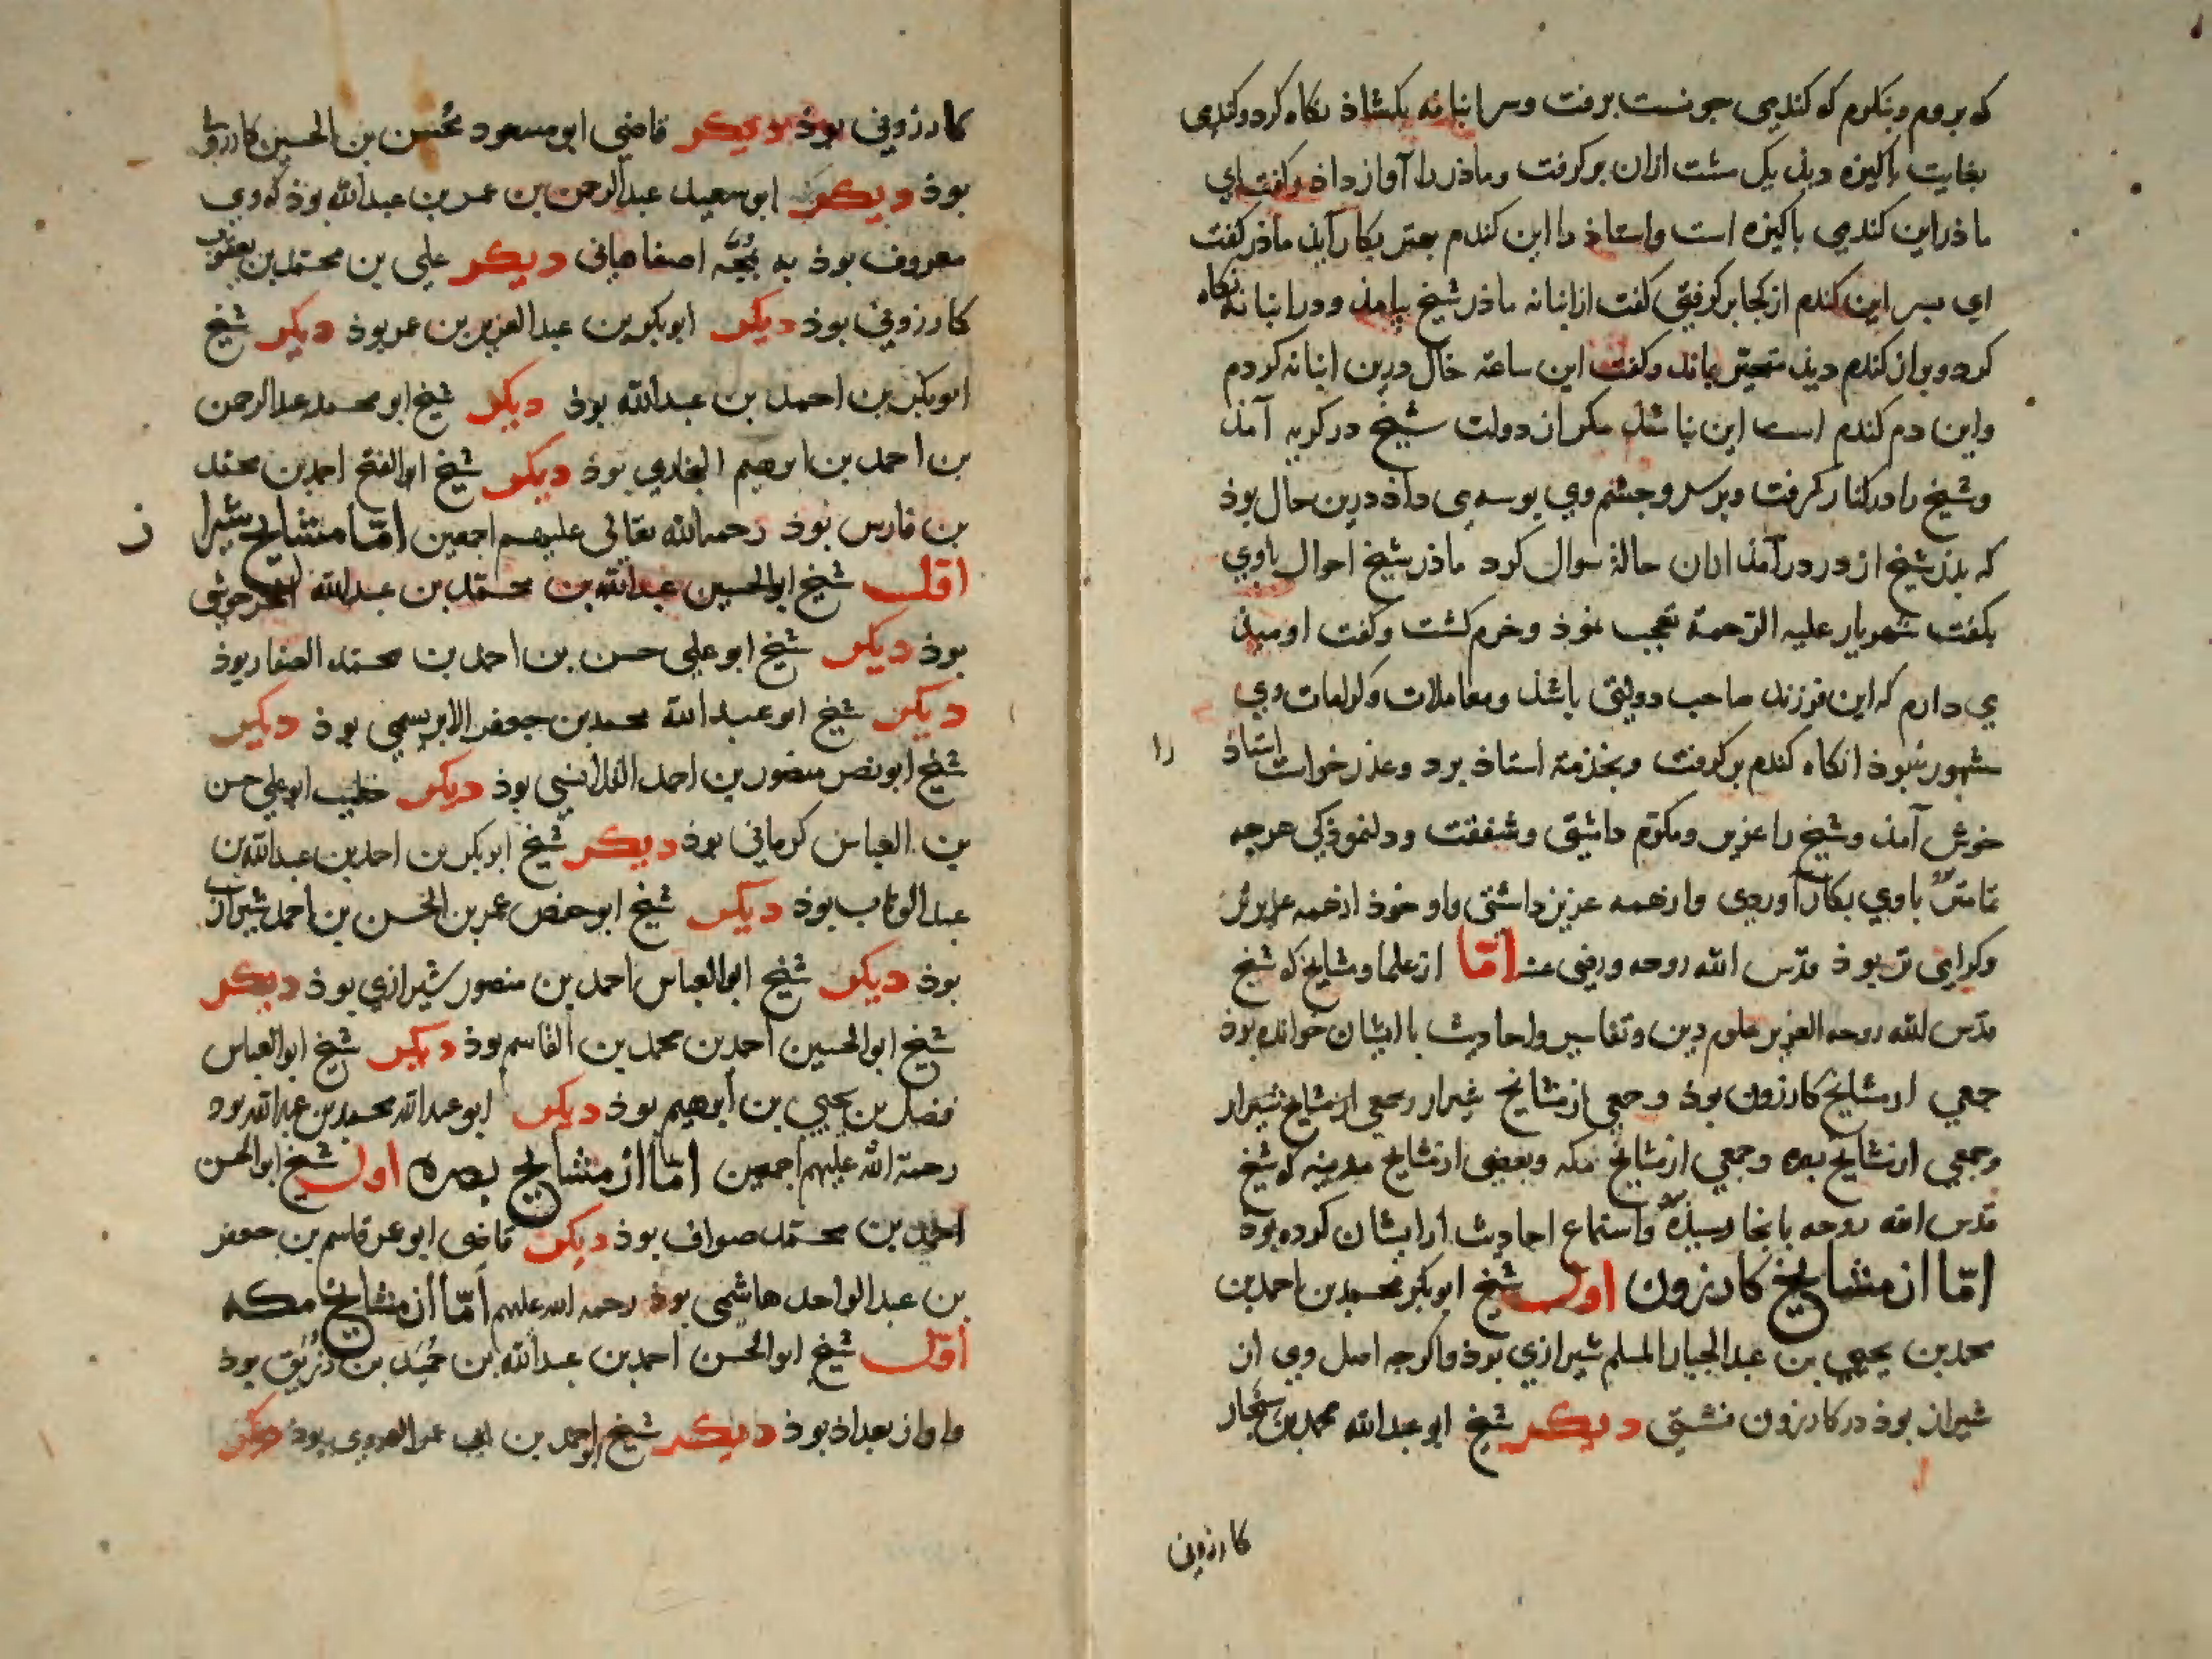 که بروم وبنکرم که کندمی جونست برفت وسر انبانه بکشاذ نکاه کرد وکندمی
بغایت باکیزه دیذ یک مشت ازان برکرفت وماذر را آواز داذ وکفت ای
ماذر این کندمی باکیزه است واستاذ را این کندم بهتر بکار آیذ ماذر کفت
ای بسر این کندم از کجا برکرفتی کفت از انبانه ماذر شیخ بیامذ ودر انبانه نکاه
کرد وبران کندم دیذ متحیر بماند وکفت این ساعة خاک درین انبانه کردم
واین دم کندم است این نباشذ مکر از دولت شیخ در کریه آمذ
وشیخ را در کنار کرفت وبر سر وجشم وی بوسه می داذ درین حال بوذ
که بذر شیخ از در درآمذ ازان حالة سوال کرد ماذر شیخ احوال باوی
بکفت شهریار علیه الرحمة تعجب نموذ وخرم کشت وکفت اومیذ
می دارم که این فرزند صاحب دولتی باشذ ومعاملات وکرامات وی
مشهور شوذ انکاه کندم برکرفت وبخذمة استاذ برد وعذر خواست استاذ
را
خوش آمذ وشیخ را عزیز ومکرم داشتی وشفقت ودلنموذکی هرجه
تمامتر باوی بکار آوردی واز همه عزیز داشتی واو خوذ از همه عزیزتر
وکرامی تر بوذ قدس الله روحه ورضی عنه امّا از علما ومشایخ که شیخ
قدس الله روحه العزیز علوم دین وتفاسیر واحادیث با ایشان خوانده بوذ
جمعی از مشایخ کازرون بوذ وجمعی از مشایخ شیراز وجمعی از مشایخ شیراز
وجمعی از مشایخ بصره وجمعی از مشایخ مکه وبعضی از مشایخ مدینه که شیخ
قدس الله روحه بانجا رسیذه واستماع احادیث از ایشان کرده بوذ
امّا از مشایخ کازرون اول شیخ ابوبکر محمد بن احمد بن
محمد بن یحیی بن عبد الجبار المسلم شیرازی بوذ واکرجه اصل وی از
شیراز بوذ در کازرون نشستی دیکر شیخ ابو عبدالله محمد بن
کازرونی
کازرونی بوذ دیکر قاضی ابو مسعود محسن بن الحسین کازرونی
بوذ دیکر ابو سعید عبدالرحمن بن عمر بن عبدالله بوذ که وی
معروف بوذ به اصفاهانی دیکر علی بن محمد بن یعقوب
کازرونی بوذ دیکر ابوبکر بن عبد العزیز بن عمر بوذ دیکر شیخ
ابوبکر بن احمد بن عبدالله بوذ دیکر شیخ ابو محمد عبدالرحمن
بن احمد بن ابرهیم البخاری بوذ دیکر شیخ ابوالفتح احمد بن محمد
بن فارس بوذ رحمه الله تعالی علیهم اجمعین امّا مشایخ شیرا
ز
اوّل شیخ ابوالحسین عبدالله بن محمد بن عبدالله الخرجوشی
بوذ دیکر شیخ ابو علی حسن بن احمد بن محمد الصفار بوذ
دیکر شیخ ابو عبدالله محمد بن جعفر الابریسمی بوذ دیکر
شیخ ابو نصر منصور بن احمد القلانسی بوذ دیکر خطیب ابو علی حسن
بن العباس کرمانی بوذ دیکر شیخ ابوبکر بن احمد بن عبدالله بن
عبد الوهاب بوذ دیکر شیخ ابو حفص عمر بن الحسن بن احمد شیرازی
بوذ دیکر شیخ ابوالعباس احمد بن منصور شیرازی بوذ دیکر
شیخ ابوالحسین احمد بن محمد بن القاسم بوذ دیکر شیخ ابوالعباس
فضل بن یحیی بن ابرهیم بوذ دیکر ابو عبدالله محمد بن عبدالله بود
رحمة الله علیهم اجمعین امّا از مشایخ بصره اول شیخ ابوالحسن
احمد بن محمد صواف بوذ دیکر قاضی ابو عمر قاسم بن جعفر
بن عبد الواحد هاشمی بوذ رحمه الله علیهم امّا از مشایخ مکه
اوّل شیخ ابوالحسن احمد بن عبدالله بن حُمَید بن زُرَیق بوذ
واو از بغداذ بوذ دیکر شیخ احمد بن ابی بوذ دیکر